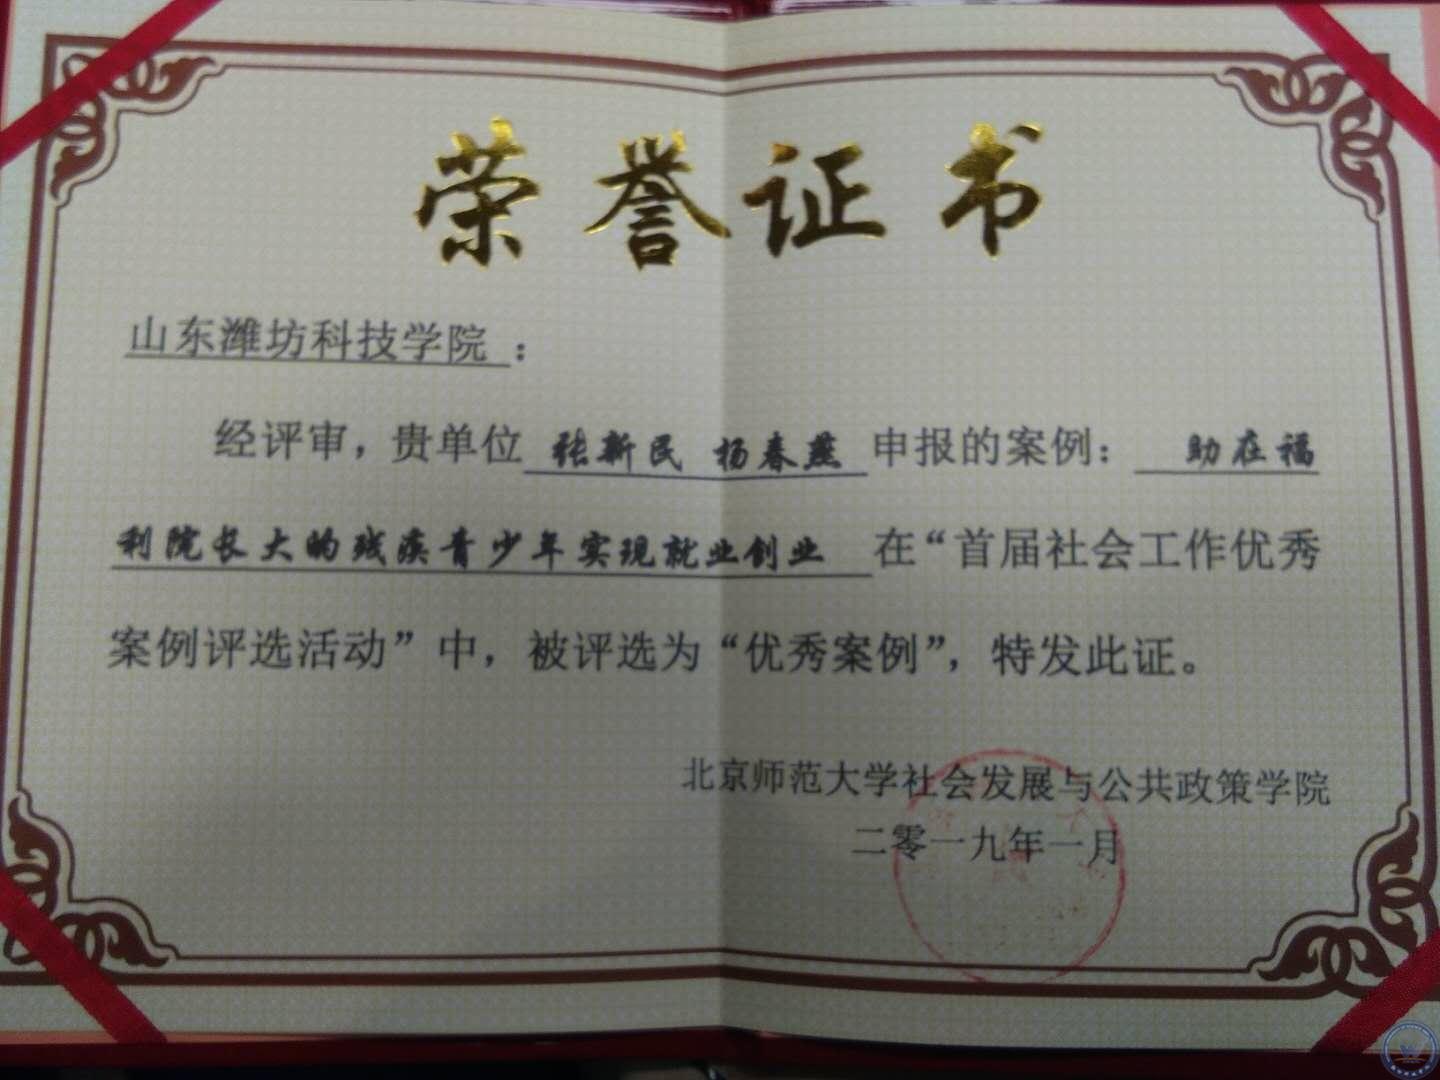 荣誉证书
山东潍坊科技学院：
经评审，贵单位 张新民 杨春燕 申报的案例： 助在福
利院长大的残疾青少年实现就业创业 在“首届社会工作优秀
案例评选活动”中，被评选为“优秀案例”，特发此证。
北京师范大学社会发展与公共政策学院
二零一九年一月